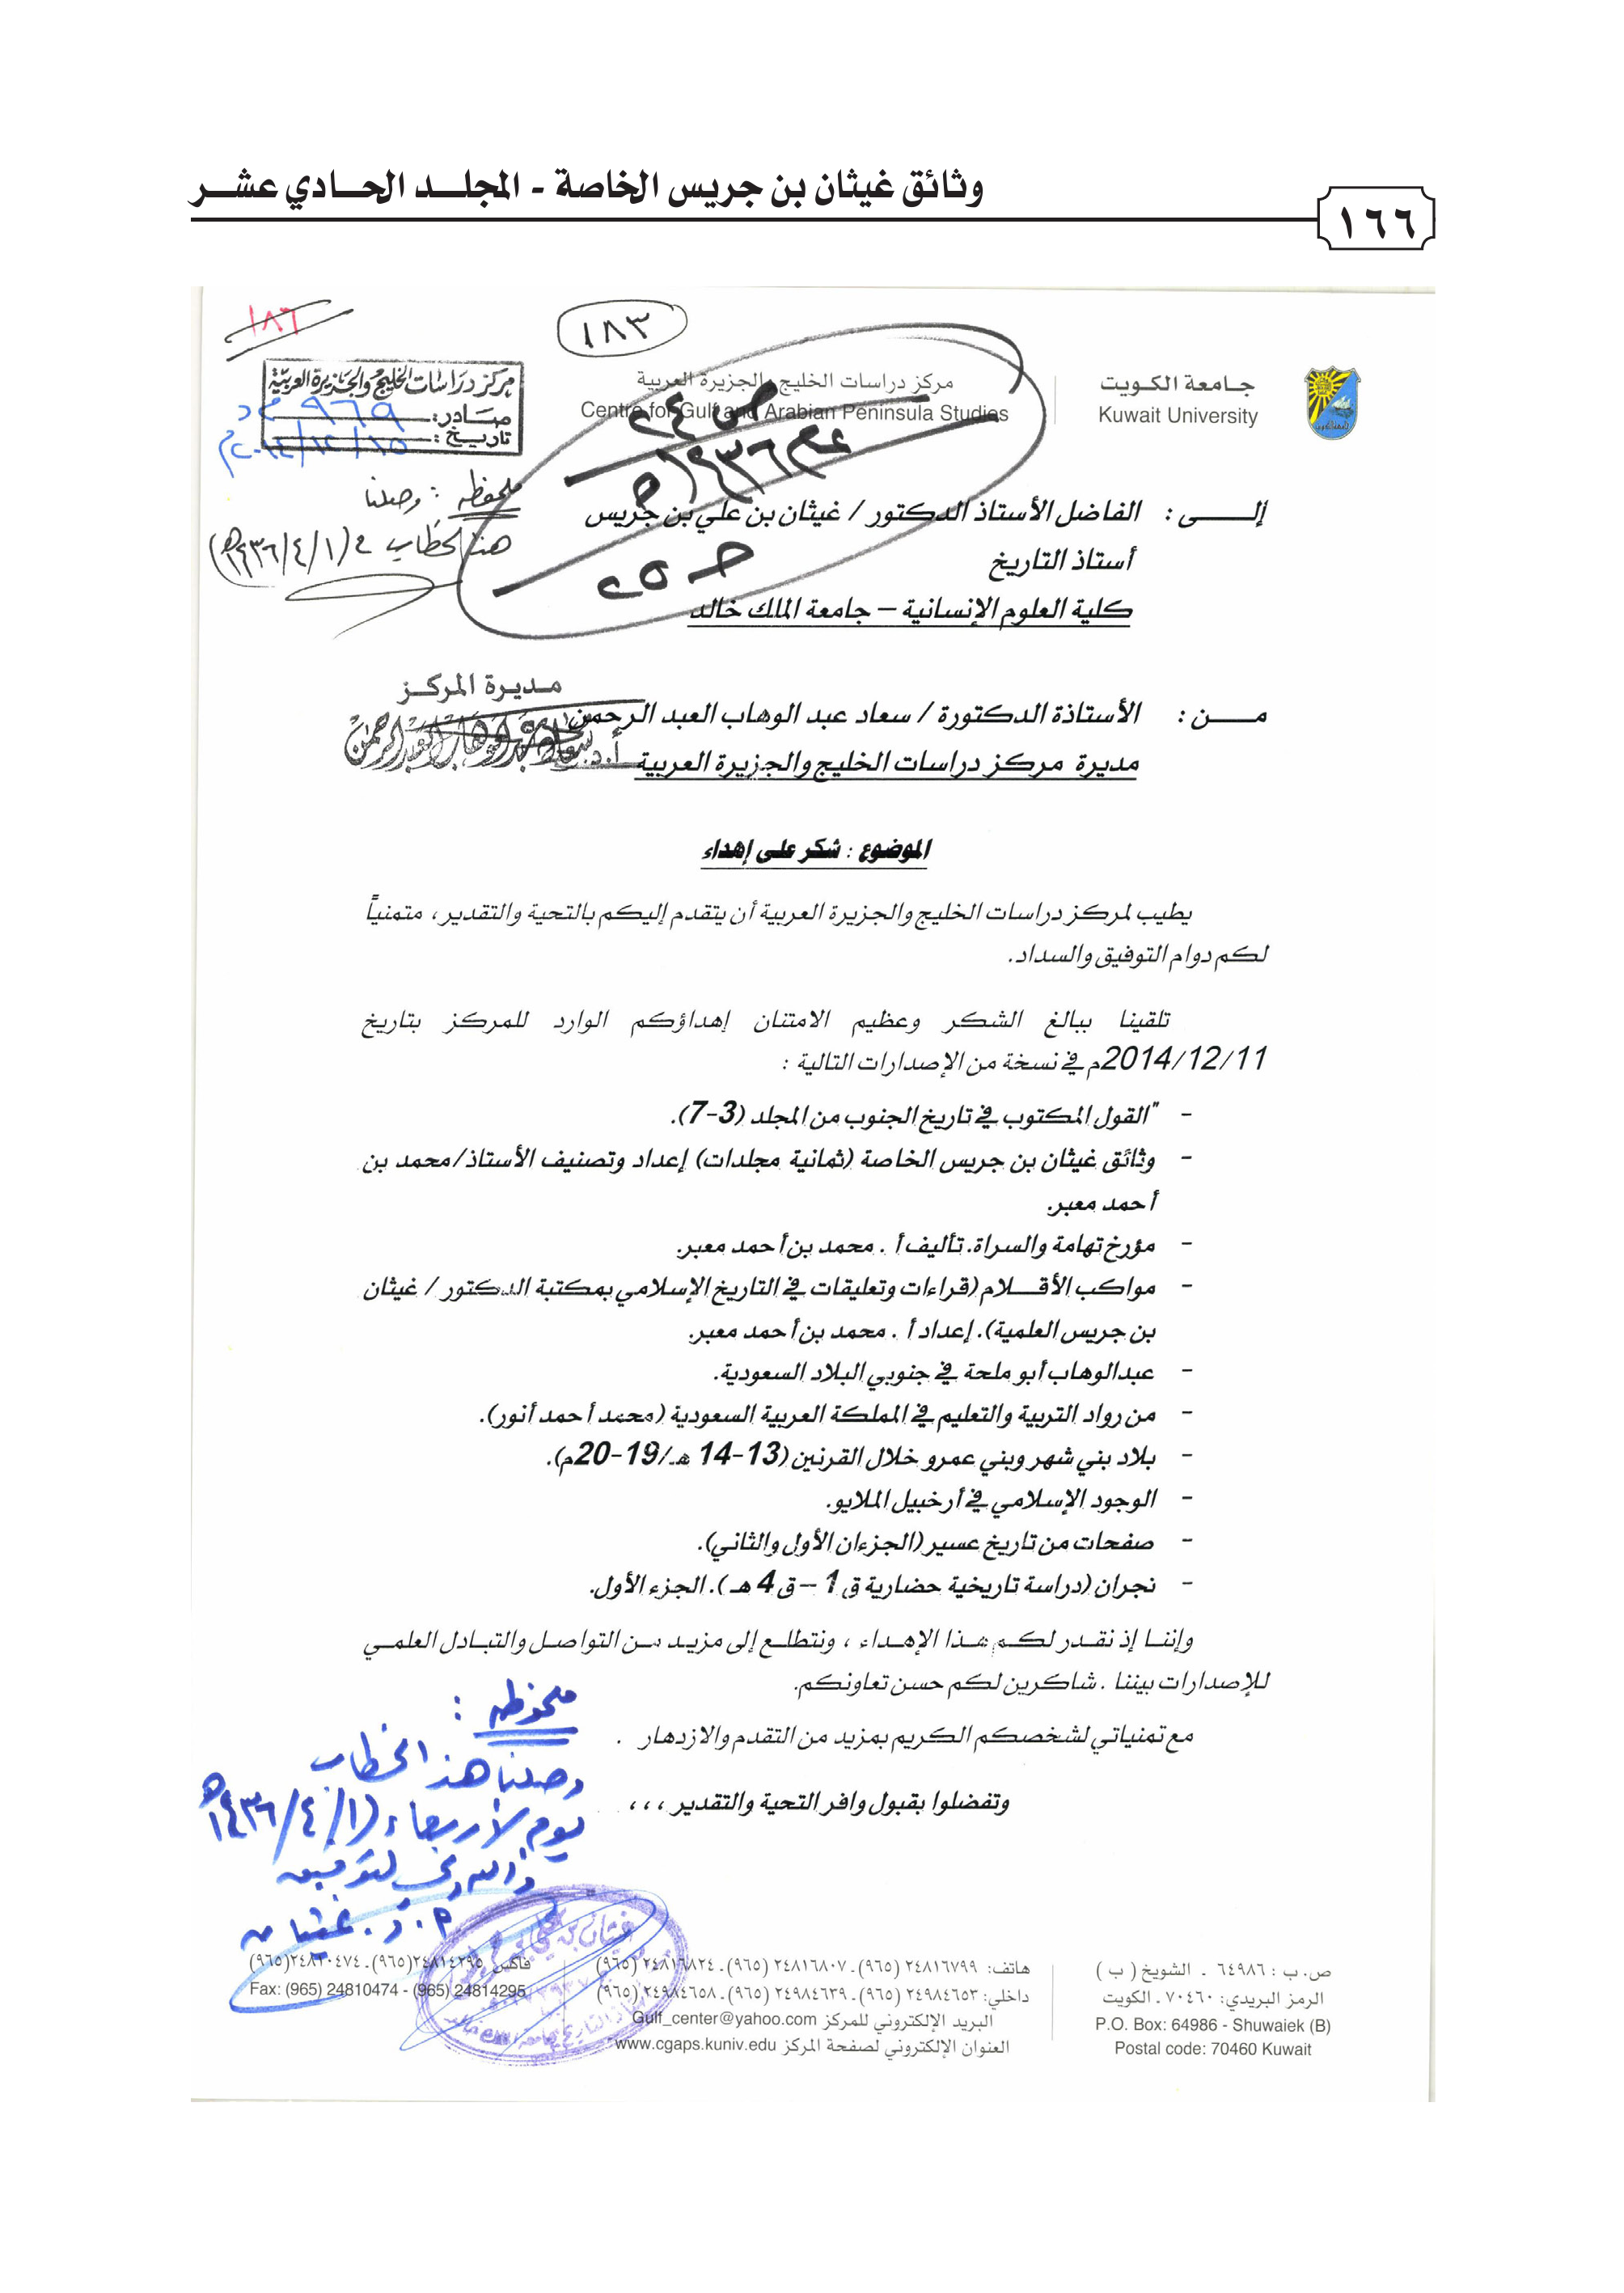 وثائق غيثان بن جريس الخاصة - المجلد الحادي عشر
١٦٦
١٨٦
١٨٣
مركز دراسات الخليج والجزيرة العربية
صادر: ٩٦٩
تاريخ: ٢٠١٤/١٢/١٥م
مركز دراسات الخليج والجزيرة العربية
Centre for Gulf and Arabian Peninsula Studies
جامعة الكويت
Kuwait University
ص ٢٤
عام ١٤٣٦هـ
ح ٢٥
ملحوظه : وصلنا
هذا الخطاب في (١٤٣٦/٤/١هـ)
إلى : الفاضل الأستاذ الدكتور / غيثان بن علي بن جريس
أستاذ التاريخ
كلية العلوم الإنسانية – جامعة الملك خالد
مديرة المركز
أ.د. سعاد عبدالوهاب العبدالرحمن
من : الأستاذة الدكتورة / سعاد عبد الوهاب العبد الرحمن
مديرة مركز دراسات الخليج والجزيرة العربية
الموضوع : شكر على إهداء
يطيب لمركز دراسات الخليج والجزيرة العربية أن يتقدم إليكم بالتحية والتقدير، متمنياً
لكم دوام التوفيق والسداد.
تلقينا ببالغ الشكر وعظيم الامتنان إهداؤكم الوارد للمركز بتاريخ
2014/12/11م في نسخة من الإصدارات التالية :
- "القول المكتوب في تاريخ الجنوب من المجلد (3-7).
- وثائق غيثان بن جريس الخاصة (ثمانية مجلدات) إعداد وتصنيف الأستاذ/محمد بن
أحمد معبر.
- مؤرخ تهامة والسراة. تأليف أ . محمد بن أحمد معبر.
- مواكب الأقلام (قراءات وتعليقات في التاريخ الإسلامي بمكتبة الدكتور / غيثان
بن جريس العلمية). إعداد أ . محمد بن أحمد معبر.
- عبدالوهاب أبو ملحة في جنوبي البلاد السعودية.
- من رواد التربية والتعليم في المملكة العربية السعودية (محمد أحمد أنور).
- بلاد بني شهر وبني عمرو خلال القرنين (13-14 هـ/19-20م).
- الوجود الإسلامي في أرخبيل الملايو.
- صفحات من تاريخ عسير (الجزءان الأول والثاني).
- نجران (دراسة تاريخية حضارية ق 1 – ق 4 هـ ). الجزء الأول.
وإننا إذ نقدر لكم هذا الإهداء ، ونتطلع إلى مزيد من التواصل والتبادل العلمي
للإصدارات بيننا . شاكرين لكم حسن تعاونكم.
مع تمنياتي لشخصكم الكريم بمزيد من التقدم والازدهار .
وتفضلوا بقبول وافر التحية والتقدير ،،،
ملحوظه :
وصلنا هذا الخطاب
يوم الأربعاء (١٤٣٦/٤/١هـ
والله ولي التوفيق
أ.د. غيثان
ص. ب : ٦٤٩٨٦ ـ الشويخ ( ب )
الرمز البريدي: ٧٠٤٦٠ ـ الكويت
P.O. Box: 64986 - Shuwaiek (B)
Postal code: 70460 Kuwait
هاتف: ٢٤٨١٦٧٩٩ (٩٦٥) ـ ٢٤٨١٦٨٠٧ (٩٦٥) ـ ٢٤٨١٦٨٢٤ (٩٦٥)
داخلي: ٢٤٩٨٤٦٥٣ (٩٦٥) ـ ٢٤٩٨٤٦٣٩ (٩٦٥) ـ ٢٤٩٨٤٦٥٨ (٩٦٥)
البريد الإلكتروني للمركز Gulf_center@yahoo.com
العنوان الإلكتروني لصفحة المركز www.cgaps.kuniv.edu
فاكس: ٢٤٨١٤٢٩٥(٩٦٥)
Fax: (965) 24810474 - (965) 24814295